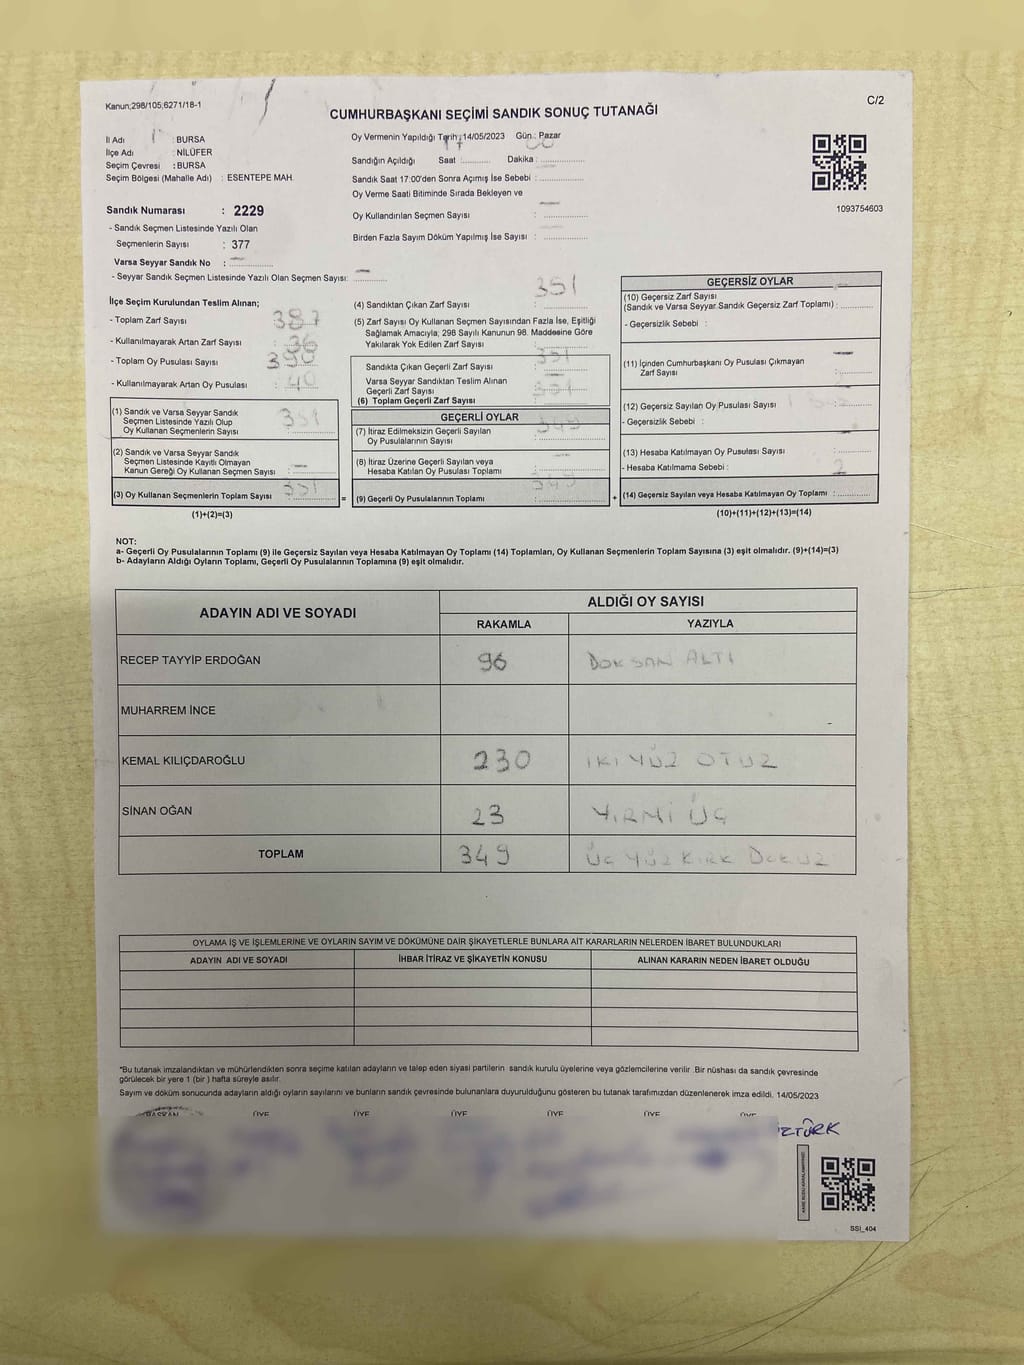 Kanun;298/105;6271/18-1
C/2
CUMHURBAŞKANI SEÇİMİ SANDIK SONUÇ TUTANAĞI
İl Adı : BURSA
İlçe Adı : NİLÜFER
Seçim Çevresi : BURSA
Seçim Bölgesi (Mahalle Adı) : ESENTEPE MAH.
Sandık Numarası : 2229
- Sandık Seçmen Listesinde Yazılı Olan
Seçmenlerin Sayısı : 377
Varsa Seyyar Sandık No :
- Seyyar Sandık Listesinde Yazılı Olan Seçmen Sayısı:
Oy Vermenin Yapıldığı Tarih: 14/05/2023 Gün : Pazar
Sandığın Açıldığı Saat : 17 Dakika : 00
Sandık Saat 17:00'den Sonra Açımış İse Sebebi :
Oy Verme Saati Bitiminde Sırada Bekleyen ve
Oy Kullandırılan Seçmen Sayısı :
Birden Fazla Sayım Döküm Yapılmış İse Sayısı :
1093754603
İlçe Seçim Kurulundan Teslim Alınan;
- Toplam Zarf Sayısı : 387
- Kullanılmayarak Artan Zarf Sayısı : 36
- Toplam Oy Pusulası Sayısı : 390
- Kullanılmayarak Artan Oy Pusulası : 40
(1) Sandık ve Varsa Seyyar Sandık
Seçmen Listesinde Yazılı Olup
Oy Kullanan Seçmenlerin Sayısı : 351
(2) Sandık ve Varsa Seyyar Sandık
Seçmen Listesinde Kayıtlı Olmayan
Kanun Gereği Oy Kullanan Seçmen Sayısı :
(3) Oy Kullanan Seçmenlerin Toplam Sayısı : 351
(1)+(2)=(3)
(4) Sandıktan Çıkan Zarf Sayısı : 351
(5) Zarf Sayısı Oy Kullanan Seçmen Sayısından Fazla İse, Eşitliği
Sağlamak Amacıyla, 298 Sayılı Kanunun 98. Maddesine Göre
Yakılarak Yok Edilen Zarf Sayısı :
Sandıkta Çıkan Geçerli Zarf Sayısı : 351
Varsa Seyyar Sandıktan Teslim Alınan
Geçerli Zarf Sayısı :
(6) Toplam Geçerli Zarf Sayısı : 351
GEÇERLİ OYLAR
(7) İtiraz Edilmeksizin Geçerli Sayılan
Oy Pusulalarının Sayısı : 349
(8) İtiraz Üzerine Geçerli Sayılan veya
Hesaba Katılan Oy Pusulası Toplamı :
= (9) Geçerli Oy Pusulalarının Toplamı : 349
GEÇERSİZ OYLAR
(10) Geçersiz Zarf Sayısı
(Sandık ve Varsa Seyyar Sandık Geçersiz Zarf Toplamı) :
- Geçersizlik Sebebi :
(11) İçinden Cumhurbaşkanı Oy Pusulası Çıkmayan
Zarf Sayısı :
(12) Geçersiz Sayılan Oy Pusulası Sayısı :
- Geçersizlik Sebebi :
(13) Hesaba Katılmayan Oy Pusulası Sayısı :
- Hesaba Katılmama Sebebi :
+ (14) Geçersiz Sayılan veya Hesaba Katılmayan Oy Toplamı : 2
(10)+(11)+(12)+(13)=(14)
NOT:
a- Geçerli Oy Pusulalarının Toplamı (9) ile Geçersiz Sayılan veya Hesaba Katılmayan Oy Toplamı (14) Toplamları, Oy Kullanan Seçmenlerin Toplam Sayısına (3) eşit olmalıdır. (9)+(14)=(3)
b- Adayların Aldığı Oyların Toplamı, Geçerli Oy Pusulalarının Toplamına (9) eşit olmalıdır.
ADAYIN ADI VE SOYADI
ALDIĞI OY SAYISI
RAKAMLA YAZIYLA
RECEP TAYYİP ERDOĞAN 96 DOKSAN ALTI
MUHARREM İNCE
KEMAL KILIÇDAROĞLU 230 İKİ YÜZ OTUZ
SİNAN OĞAN 23 YİRMİ ÜÇ
TOPLAM 349 ÜÇ YÜZ KIRK DOKUZ
OYLAMA İŞ VE İŞLEMLERİNE VE OYLARIN SAYIM VE DÖKÜMÜNE DAİR ŞİKAYETLERLE BUNLARA AİT KARARLARIN NELERDEN İBARET BULUNDUKLARI
ADAYIN ADI VE SOYADI İHBAR İTİRAZ VE ŞİKAYETİN KONUSU ALINAN KARARIN NEDEN İBARET OLDUĞU
"Bu tutanak imzalandıktan ve mühürlendikten sonra seçime katılan adayların ve talep eden siyasi partilerin sandık kurulu üyelerine veya gözlemcilerine verilir .Bir nüshası da sandık çevresinde
görülecek bir yere 1 (bir ) hafta süreyle asılır.
Sayım ve döküm sonucunda adayların aldığı oyların sayılarını ve bunların sandık çevresinde bulunanlara duyurulduğunu gösteren bu tutanak tarafımızdan düzenlenerek imza edildi. 14/05/2023
BAŞKAN ÜYE ÜYE ÜYE ÜYE ÜYE ÜYE
ZTÜRK
SSİ_404